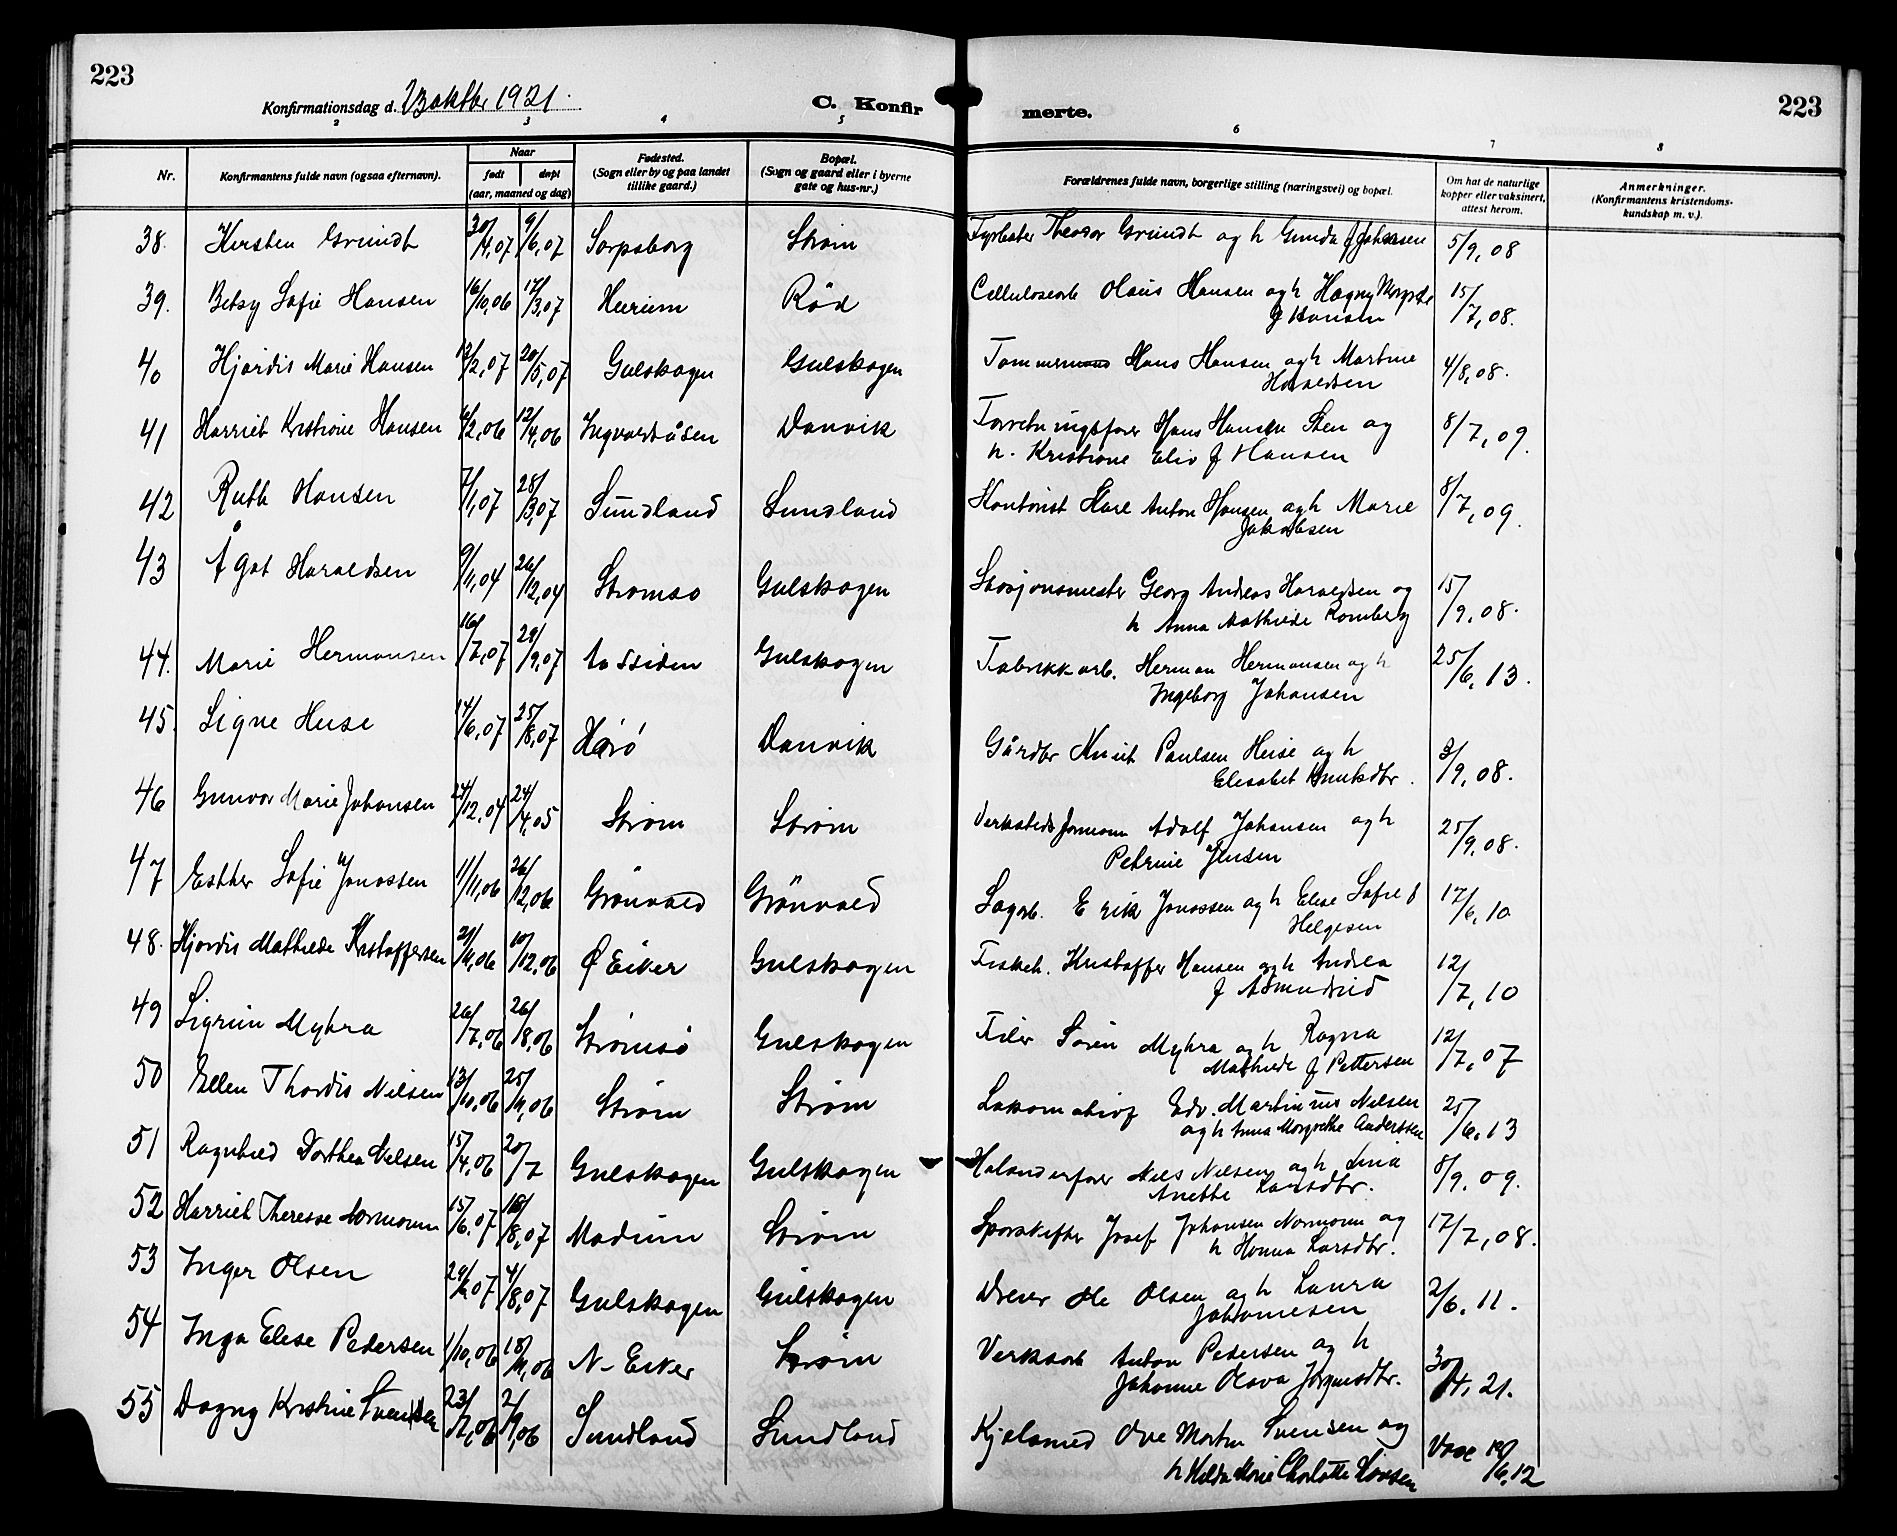 223
Konfirmationsdag d. 23 oktbr 1921.
C. Konfir
merte.
223
2 3 4 5 6 7 8
Nr.
Konfirmantens fulde navn (ogsaa efternavn).
Naar
født døpt
(aar, maaned og dag)
Fødested.
(Sogn eller by og paa landet
tillike gaard.)
Bopæl.
(Sogn og gaard eller i byerne
gate og hus-nr.)
Forældrenes fulde navn, borgerlige stilling (næringsvei) og bopæl.
Om hat de naturlige
kopper eller vaksinert,
attest herom.
Anmerkninger.
(Konfirmantens kristendoms-
kundskap m. v.).
38. Kirsten Grundt 30/4,07 9/6,07 Sarpsborg Strøm Fyrbøter Theodor Grundt og h Gunda f Johansen 5/9,08
39. Betsy Sofie Hansen 16/10,06 17/3,07 Hurum Rød Cellulosearb Olaus Hansen og h Hagny Margrete
f Hansen 15/7,08.
40 Hjørdis Marie Hansen 12/2,07 20/5,07 Gulskogen Gulskogen Tømmermand Hans Hansen og h Martine
Haraldsen 4/8,08.
41 Harriet Kristiane Hansen 4/2,06 12/4,06 Ingvaldsåsen Danvik Forretningsfører Hans Hansen Sten og
h. Kristiane Eliv f Hansen 8/7,09.
42 Ruth Hansen 7/1,07 28/3,07 Sundland Sundland Kontorist Karl Anton Hansen og h Marie
Jakobsen 8/7,09.
43 Ågot Haraldsen 9/11,04 26/12,04 Strømsø Gulskogen Stasjonsmester Georg Andreas Haraldsen og
h Anna Mathilde Romberg 15/9,08.
44. Marie Hermansen 16/7,07 29/9,07 Aassiden Gulskogen Fabrikkarb. Herman Hermansen og h
Ingeborg Johansen 25/6,13.
45. Signe Heise 14/6,07 25/8,07 Danvik Gårdbr Knut Paulsen Heise og h
Elisabet Knutsdtr. 3/9,08.
46 Gunvor Marie Johansen 27/12,04 24/4,05 Strøm Strøm Verkstedsformann Adolf Johansen og h
Petrine Jensen 25/9,08.
47 Esther Sofie Jonassen 1/11,06 26/12,06 Grönvold Grönvold Sagarb. Erik Jonassen og h Elise Sofie f
Helgesen 17/6,10
48. Hjørdis Mathilde Kristoffersen 21/11,06 10/12,06 Ø Eiker Gulskogen Fiskeh. Kristoffer Hansen og h Andrea
f Asmudrud 12/7,10
49 Sigrun Myhra 26/7,06 26/8,06 Strømsø Gulskogen Filer Søren Myhra og h Ragna
Mathilde f Pettersen 12/7,07
50 Ellen Thordis Nilsen 13/10,06 25/11,06 Strøm Strøm Lokomotivf Edv. Martinius Nilsen
og h Anna Margrethe Anderssen 25/6,13
51 Ragnhild Dorthea Nilsen 15/4,06 20/7 Gulskogen Gulskogen Holenderfører Nils Nilsen og h Lina
Anette Larsdtr. 8/9,09.
52 Harriet Therese Normann 15/6.07 18/8,07 Modum Strøm Sporskifter Josef Johansen Normann og
h Hanna Larsdtr. 17/7,08.
53 Inger Olsen 29/6,07 4/8,07 Gulskogen Gulskogen Dreier Ole Olsen og h Laura
Johannesen 2/6.11.
54 Inga Elise Pedersen 1/10,06 18/11,06 N-Eiker Strøm Verksarb Anton Pedersen og h
Johanne Olava Jørgensdtr. 30/4.21.
55 Dagny Kristine Svendsen 23/7,06 2/9,06 Sundland Sundland Kjelsmed Ove Morten Svensen og
h Hilda Marie Charlotte Larsen Vacc 18/6.12